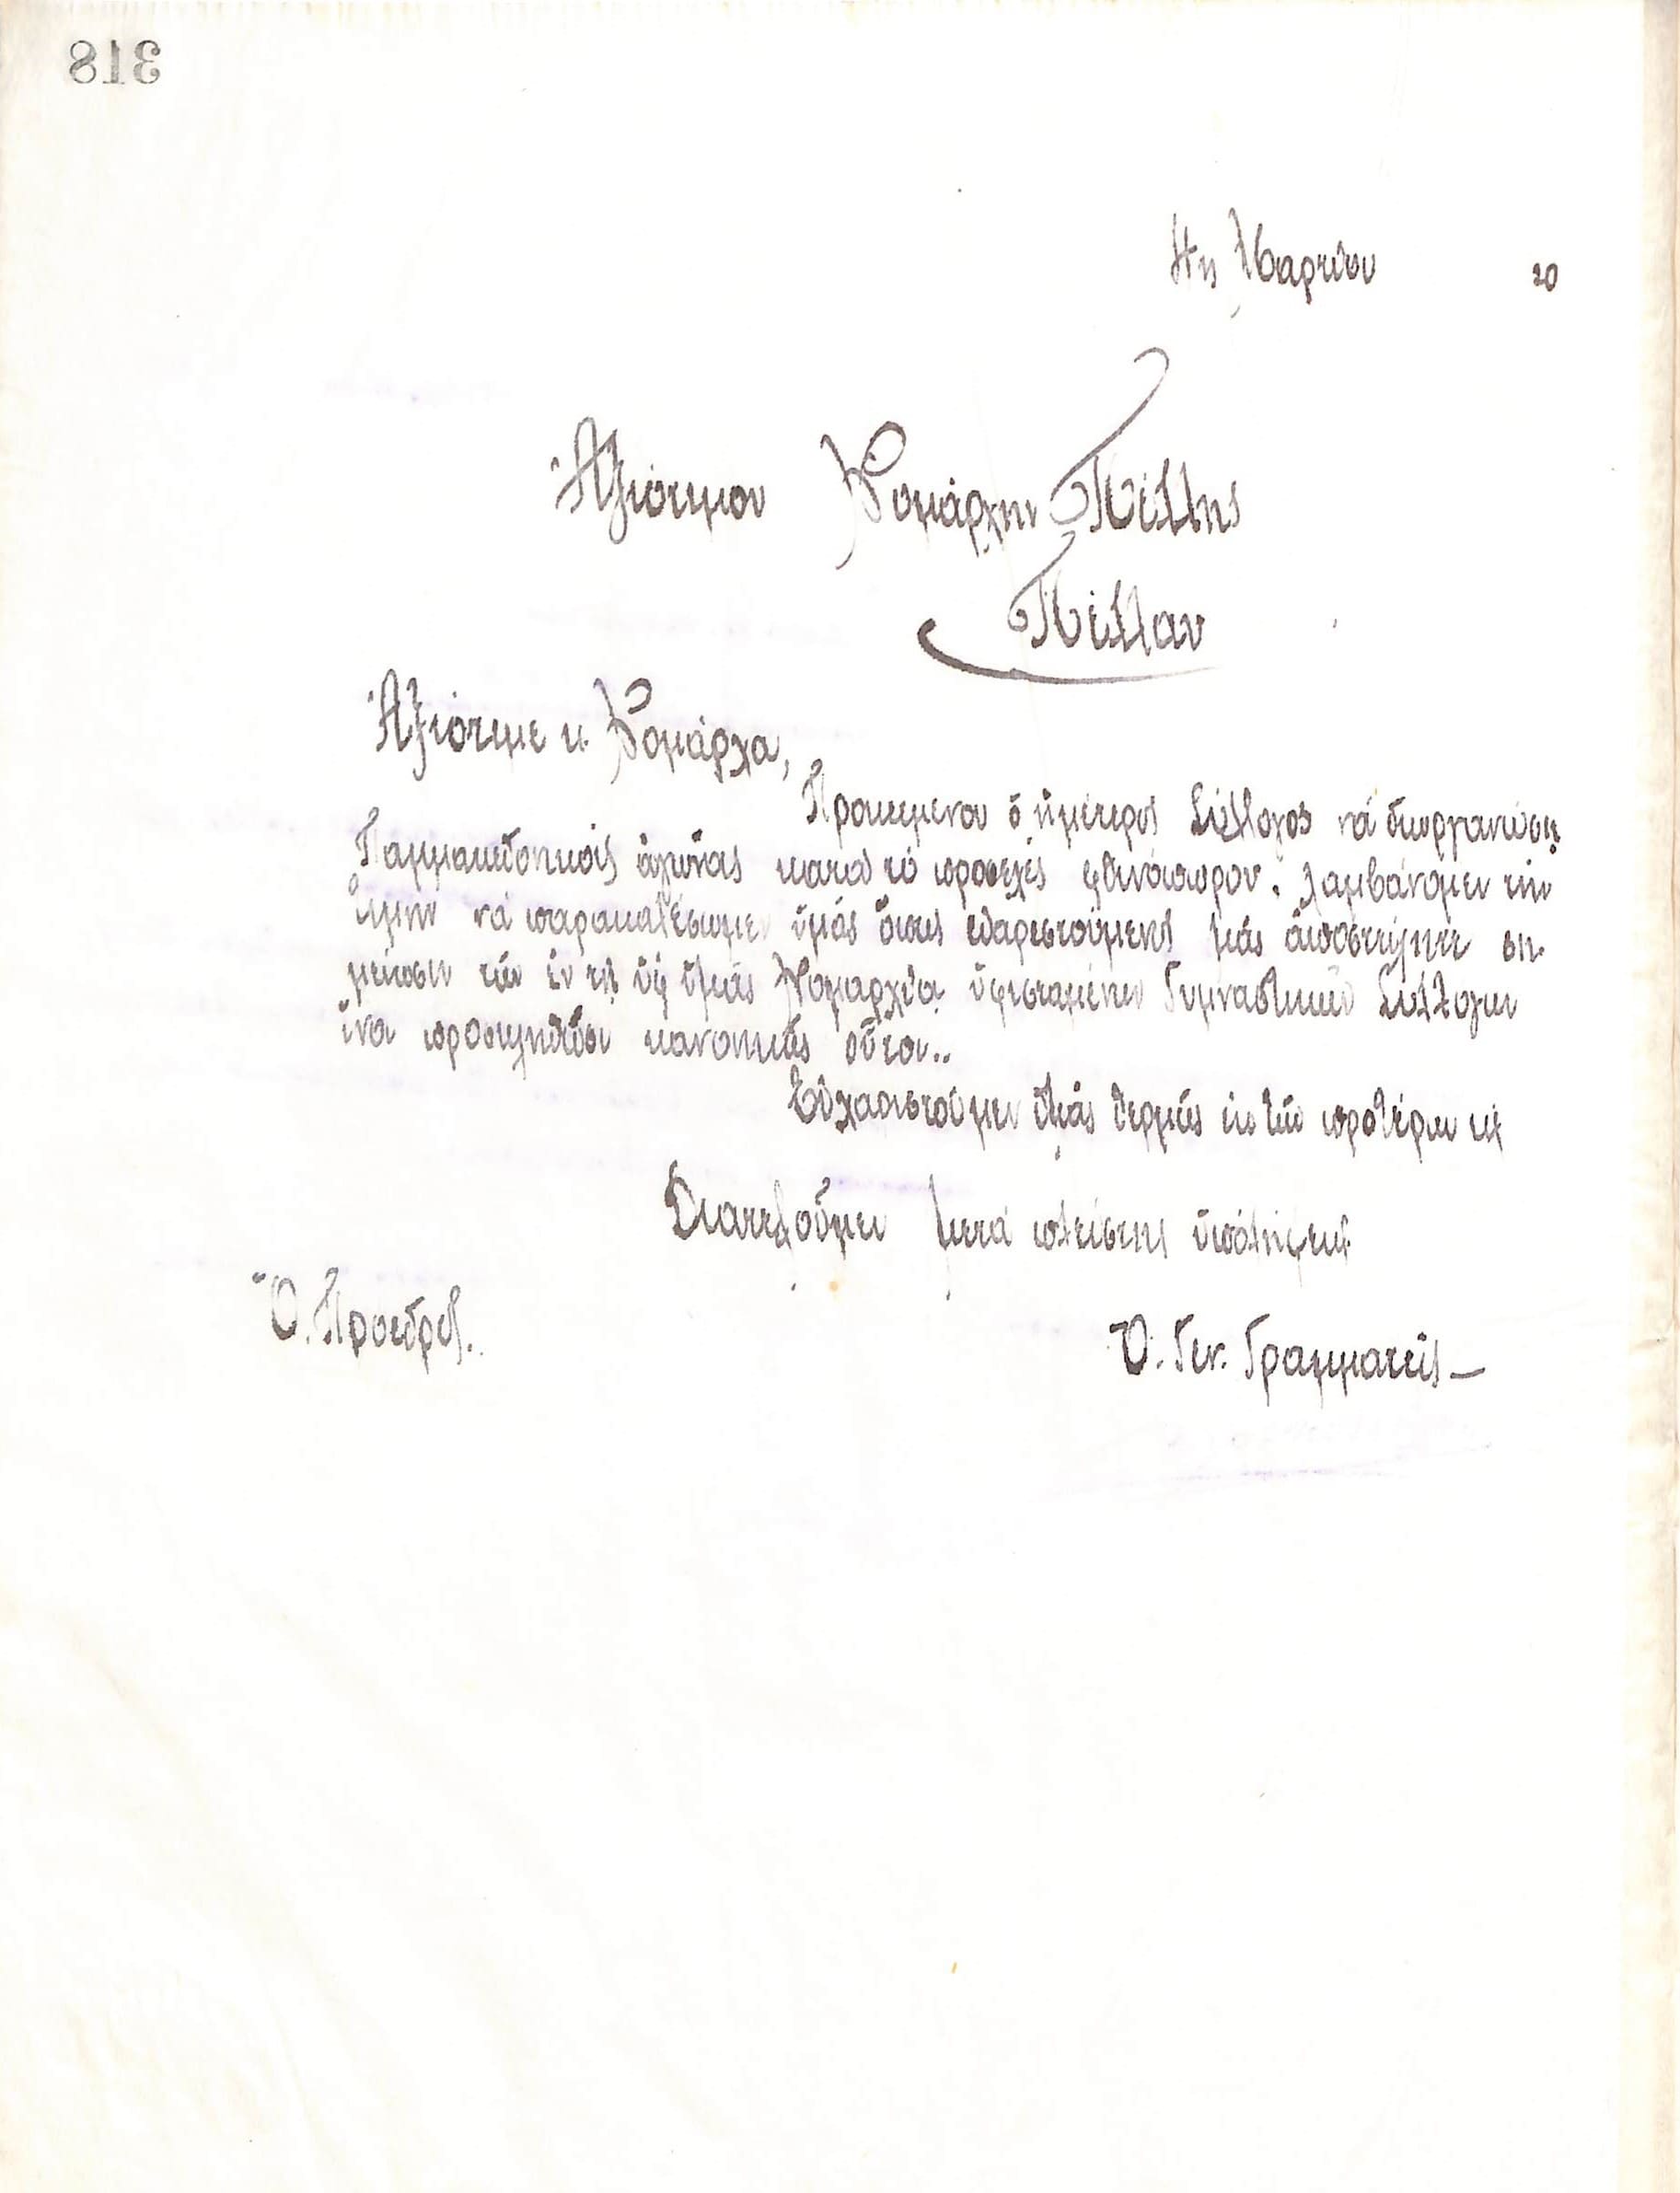 318
4ης Μαρτίου 20
Ἀξιότιμον Νομάρχην Πέλλης
Πέλλαν
Ἀξιότιμε κ. Νομάρχα,
Προκειμένου ὁ ἡμέτερος Σύλλογος νά διοργανώσῃ
Παμμακεδονικούς ἀγῶνας κατά τό προσεχές φθινόπωρον, λαμβάνομεν τήν
τιμήν νά παρακαλέσωμεν ὑμᾶς ὅπως εὐαρεστούμενος μᾶς ἀποστείλητε ση-
μείωσιν τῶν ἐν τῇ ὑφ' ὑμᾶς Νομαρχίᾳ ὑφισταμένων Γυμναστικῶν Συλλόγων
ἵνα προσκληθῶσι κανονικῶς οὗτοι..
Εὐχαριστοῦμεν ὑμᾶς θερμῶς ἐκ τῶν προτέρων κ
Διατελοῦμεν μετά πλείστης ὑπολήψεως
Ὁ. Πρόεδρος.
Ὁ. Γεν. Γραμματεύς —